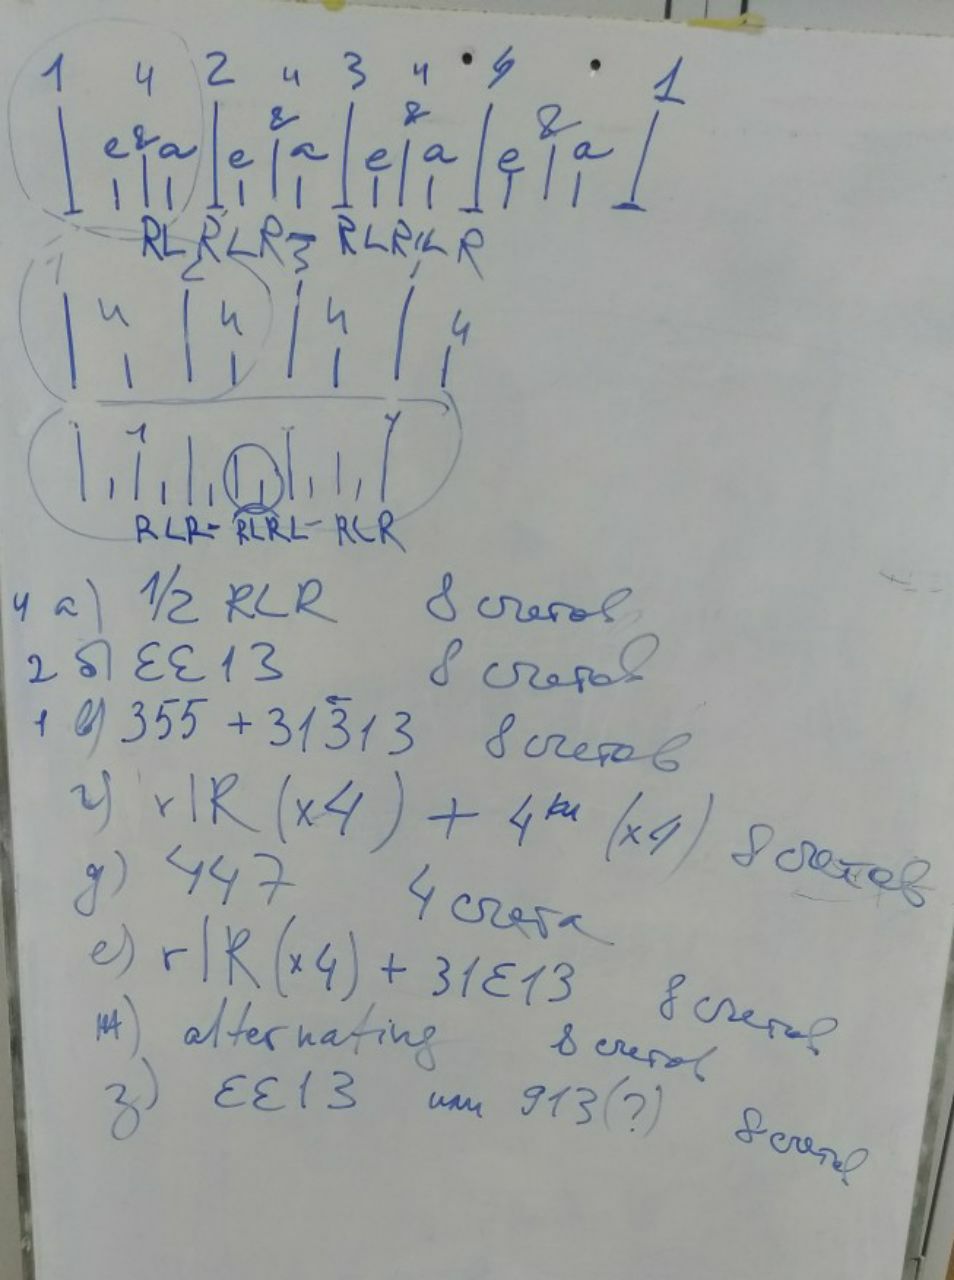 1 4 2 4 3 4 4 1
e & a e & a e & a e & a
RL RLR- RLRL R
1 2 3
4 4 4 4
RLR- RLRL- RLR
4 а) 1/2 RLR 8 счетов
2 б) ƐƐ13 8 счетов
1 в) 355 + 31313 8 счетов
г) rlR (x4) + 4 (x4) 8 счетов
д) 447 4 счета
е) rlR (x4) + 31Ɛ13 8 счетов
ж) alternating 8 счетов
з) ƐƐ13 или 913(?) 8 счетов